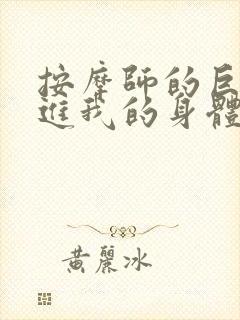 按摩師的巨
進我的身體
黃麗冰